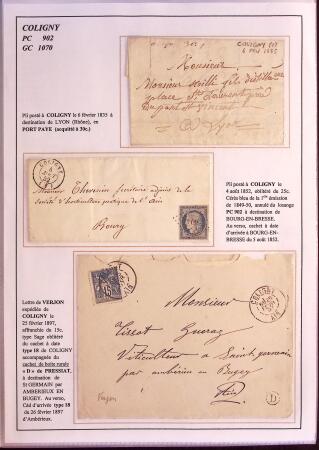 COLIGNY
PC 902
GC 1070
COLIGNY
6 FEV 1835
Monsieur
Monsieur
place St Laurent
Lyon
Pli posté à COLIGNY le 6 février 1835 à
destination de LYON (Rhône), en
PORT PAYE (acquitté à 30c.)
COLIGNY
Monsieur Thevenin secrétaire adjoint de la
société d'horticulture pratique de l'Ain
Bourg
Pli posté à COLIGNY le
4 août 1852, oblitéré du 25c.
Cérès bleu de la 1ère émission
de 1849-50, annulé du losange
PC 902 à destination de
BOURG-EN-BRESSE.
Au verso, cachet à date
d'arrivée à BOURG-EN-
BRESSE du 5 août 1852.
Lettre de VERJON
expédiée de
COLIGNY le
25 février 1897,
affranchie du 15c.
type Sage oblitéré
du cachet à date
type 18 de COLIGNY
accompagnée du
cachet de boîte rurale
« D » de PRESSIAT,
à destination de
St GERMAIN par
AMBERIEUX EN
BUGEY. Au verso,
Càd d'arrivée type 18
du 26 février 1897
d'Ambérieux.
15
COLIGNY
AIN
Monsieur
Tissot
Viticulteur à Saint germain
par ambérieu en Bugey
Ain
D
Verjon